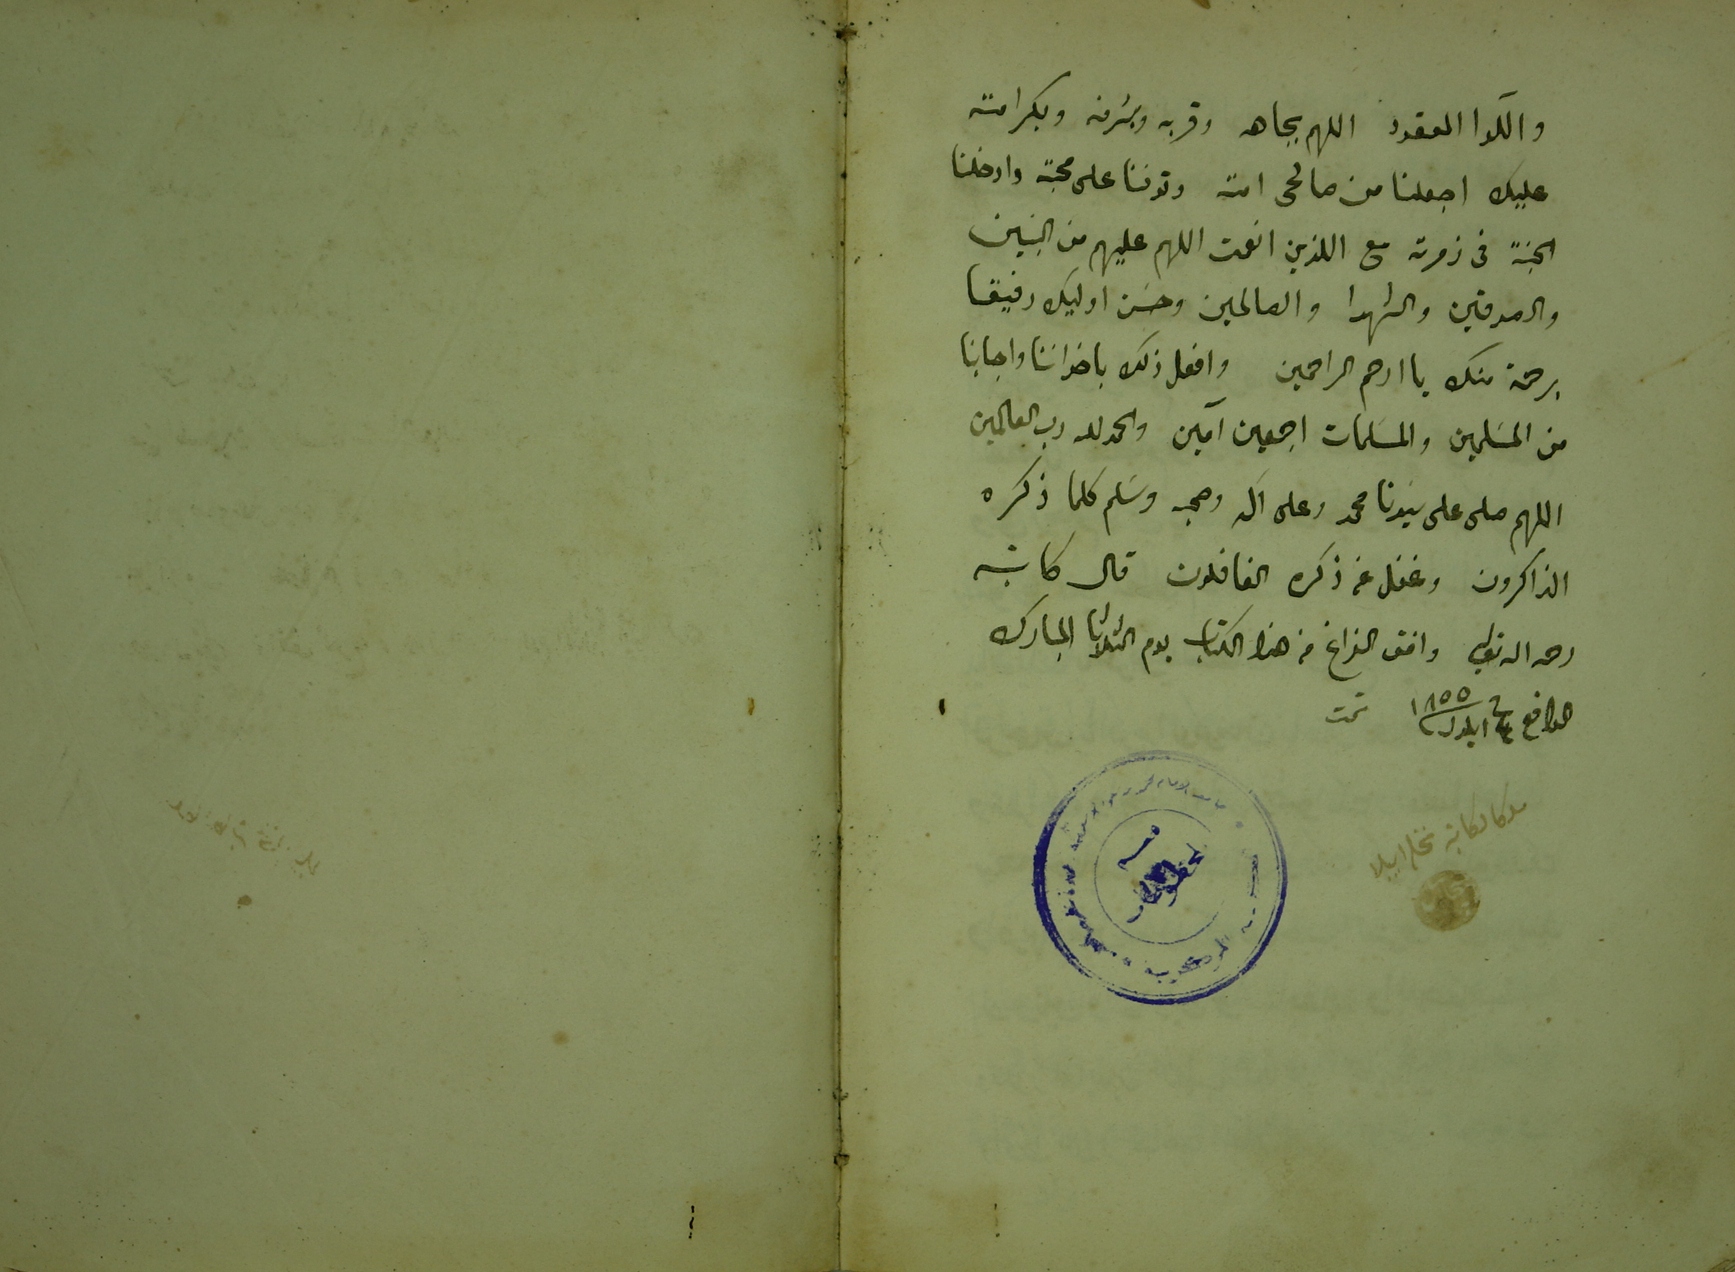 واللوا المعقود اللهم بجاهه وقربه وبشرفه وبكرامته
عليك اجعلنا من صالحى امته وتوفنا على محبته وادخلنا
الجنة فى زمرته مع اللذين انعمت اللهم عليهم من النبيين
والصدقين والشهدا والصالحين وحسن اوليك رفيقا
برحمة منك يا ارحم الراحمين وافعل ذلك باخواننا واحبابنا
من المسلمين والمسلمات اجمعين آمين والحمد لله رب العالمين
اللهم صلى على سيدنا محمد وعلى آله وصحبه وسلم كلما ذكره
الذاكرون وغفل عن ذكره الغافلون قال كاتبه
رحمه الله تعالى وافق الفراغ من هذا الكتاب يوم الثلاثا المبارك
الواقع فى ايلول ١٨٥٥ تمت
قسم
المخطوطات